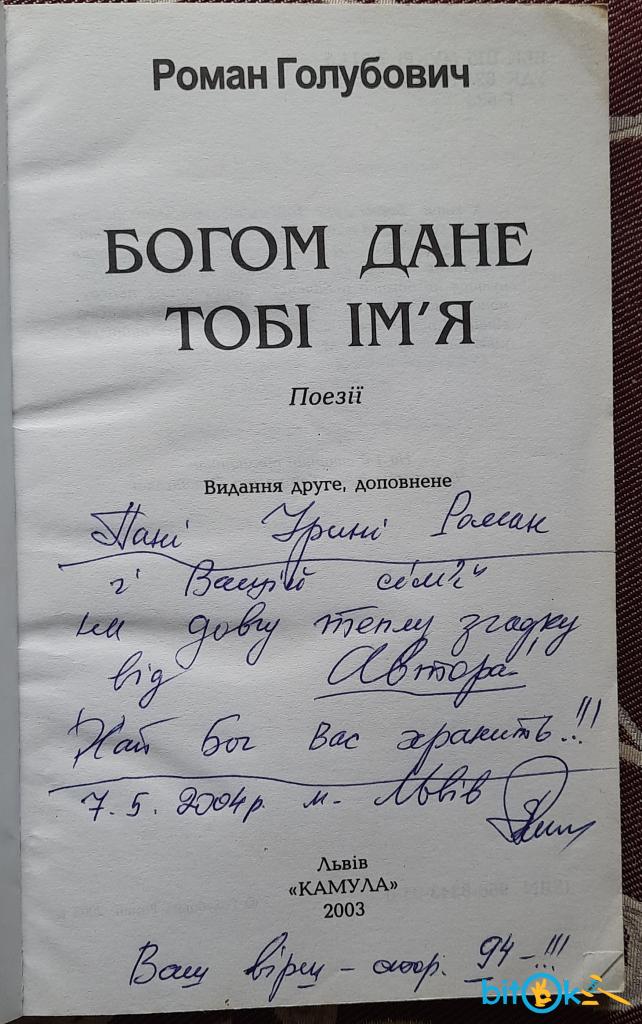 Роман Голубович
БОГОМ ДАНЕ
ТОБІ ІМ'Я
Поезії
Видання друге, доповнене
Пані Ірині Роман
і Вашій сім'ї
на довгу теплу згадку
від Автора
Хай Бог Вас хранить!!!
7.5.2004р. м. Львів
Львів
«КАМУЛА»
2003
Ваш вірш – стор. 94-!!!
bitOk